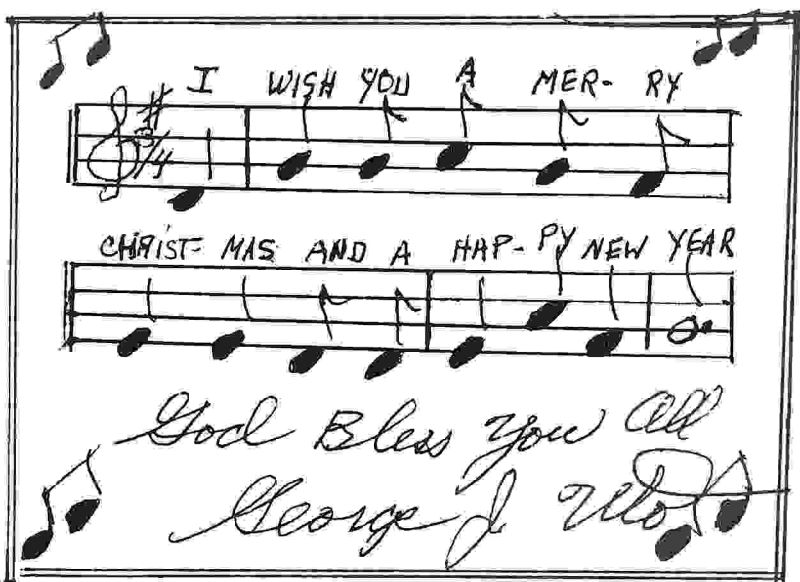 I WISH YOU A MER- RY
3/4
CHRIST- MAS AND A HAP- PY NEW YEAR
God Bless You All
George J